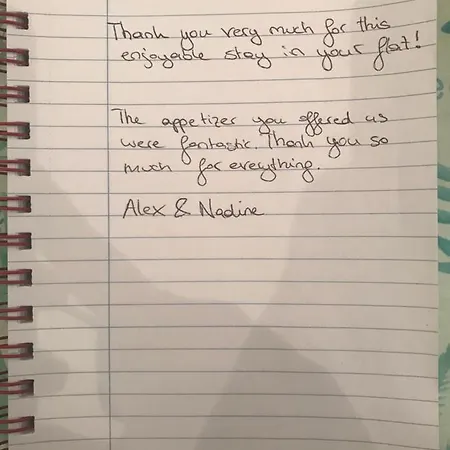 Thank you very much for this
enjoyable stay in your flat!
The appetizer you offered us
were fantastic. Thank you so
much for everything.
Alex & Nadine